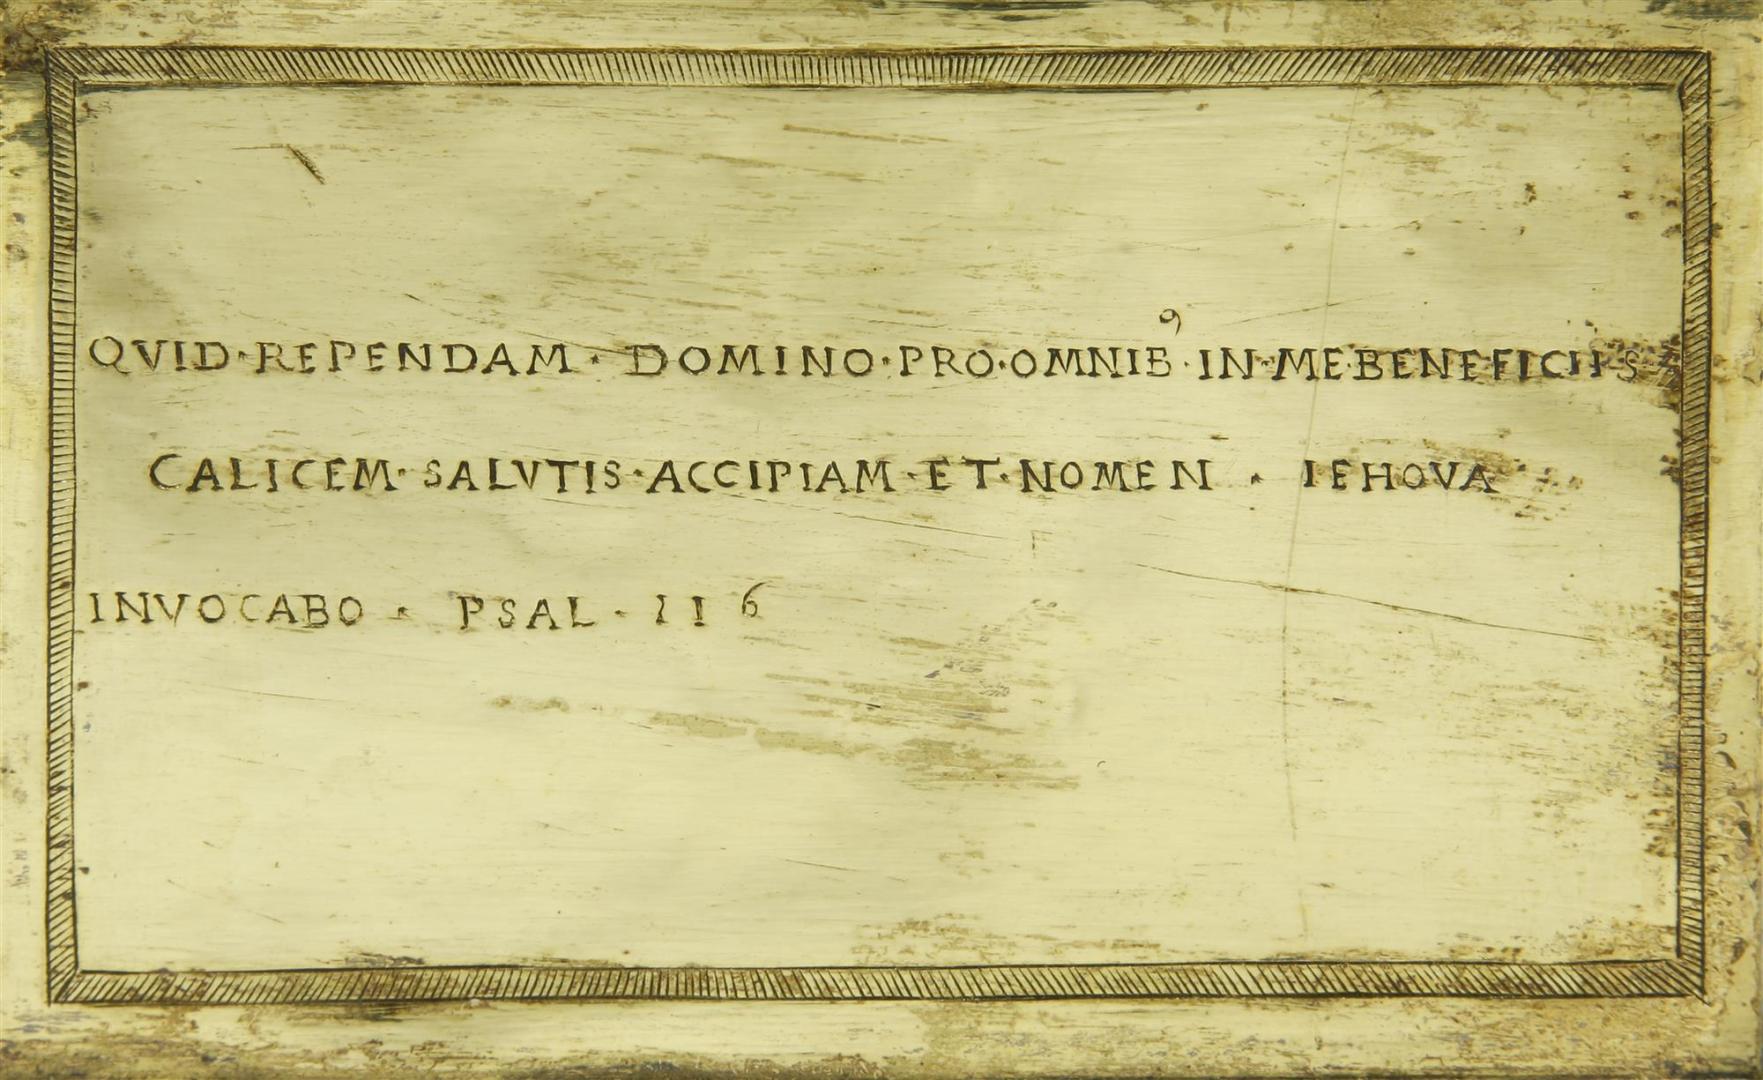 QVID·REPENDAM·DOMINO·PRO·OMNIBꝰ·IN·ME·BENEFICIIS
CALICEM·SALVTIS·ACCIPIAM·ET·NOMEN·IEHOVA
INVOCABO·PSAL·116